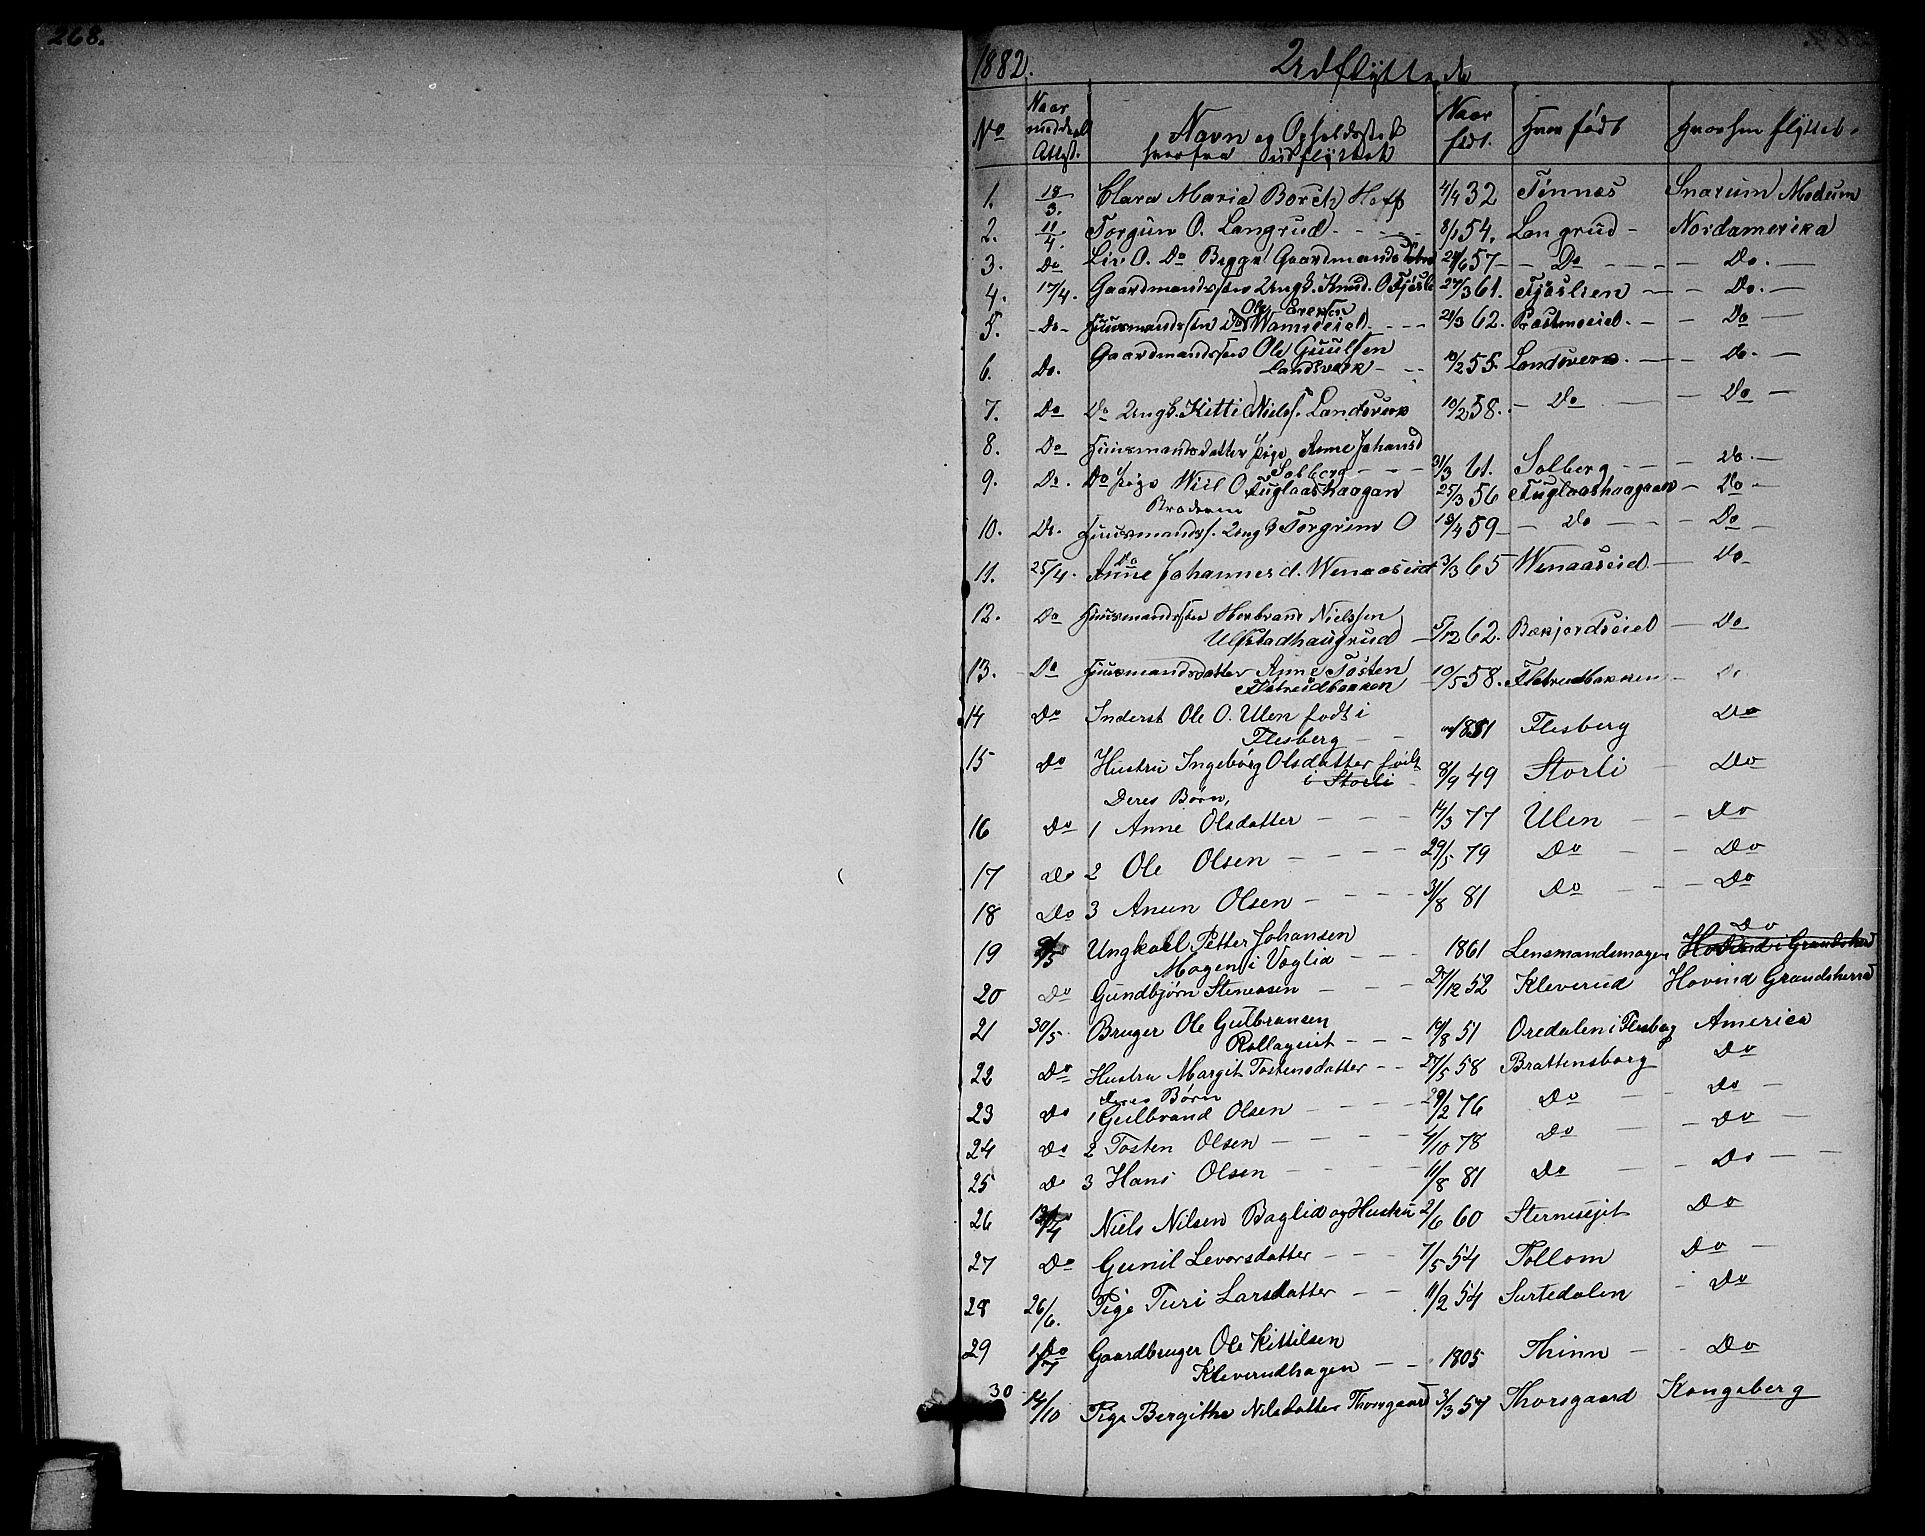 268.
1882. Udflyttede
No Naar meddelt Attest. Navn og Opholdssted hvorfra udflyttet Naar født. Hvor født Hvorhen flyttet.
1. 18/3. Clara Maria Borch Hoff 4/4 32 Tønnes Snarum Modum
2. 11/4. Torgun O. Langrud - - - - 8/1 54. Langrud - Nordamerika
3. Do Liv O. Do Begge Gaardmands 57 - Do - - - Do. -
4. 17/4. Gaardmandssøn Ungk. Knud. O 27/3 61. Fjøslien - - Do. -
5. - Do - Huusmandssøn Do Ole Eversen 21/3 62. - - Do -
6. Do. Gaardmandssøn Ole Guulsen
Landsverk - - 10/2 55. Landsverk. - - Do. -
7. Do Do Ungk. Kittil Nielss. Landsverk 10/2 58. - Do - - Do -
8. Do Huusmandsdatter Pige Anne Johansd
Solberg - - - 31/3 61. Solberg - - - Do. -
9. Do. Do Pige O Fuglaashaagan 25/3 56 Fuglaashaagaan - Do -
Broderen
10. Do. Huusmandss. Ungk Torgrim O 18/4 59 - Do - - - Do -
Do
11. 25/4. Anne Johannesd. Wenaaseid 3/3 65 Wenaaseid - Do -
12. Do Huusmandssøn Herbrand Nielssen
Ulfstadhaugrud - 5/12 62. - Do
13. Do Huusmandsdatter Anne Tosten
Flatrudbakken - 10/5 58. Flatrudbakken - Do
14 Do Inderst Ole O. Ulen født i
Flesberg - - Flesberg Do
15 Do Hustru Ingeborg Olsdatter født
i Storli - 8/9 49 Storli - Do
Deres Børn,
16 Do 1 Anne Olsdatter - - - 14/3 77 Ulen - - Do
17 Do 2 Ole Olsen - - - - 29/5 79 Do - - Do
18 Do 3 Anun Olsen - - - - 31/8 81 Do - - Do
19 9/5 Ungkarl Petter Johansen
Mogen i Voglid - - - 1861 Lensmandsmogen Do Hovind i Grandsherd
20 Do Gundbjørn Stenersen - - - 27/12 52 Kleverud Hovind Grandsherred
21 30/5. Bruger Ole Gulbransen
Rollagseit - - - 19/8 51 Oredalen i Flesberg America
22 Do Hustru Margit Tostensdatter - - 27/5 58 Brattensborg Do
Deres Børn
23 Do 1 Gulbrand Olsen - - - - 29/2 76 Do - - Do -
24 Do 2 Tosten Olsen - - - - 4/10 78 Do - - Do -
25 Do 3 Hans Olsen - - - - 11/8 81 Do - - Do - -
26 Niels Nilsen Baglid og Hustru 2/6 60 Do
27 Do Gunil Levorsdatter - - - 7/5 54 Tollom Do -
28 26/6. Pige Turi Larsdatter - - 11/2 54 Surtedalen - Do
29 Gaardbruger Ole Kittilsen
Kleverudhagen - - 1805 Thinn - - Do
30 14/10 Pige Bergithe Nilsdatter Thorsgaard 3/3 57 Thorsgaard Kongsberg